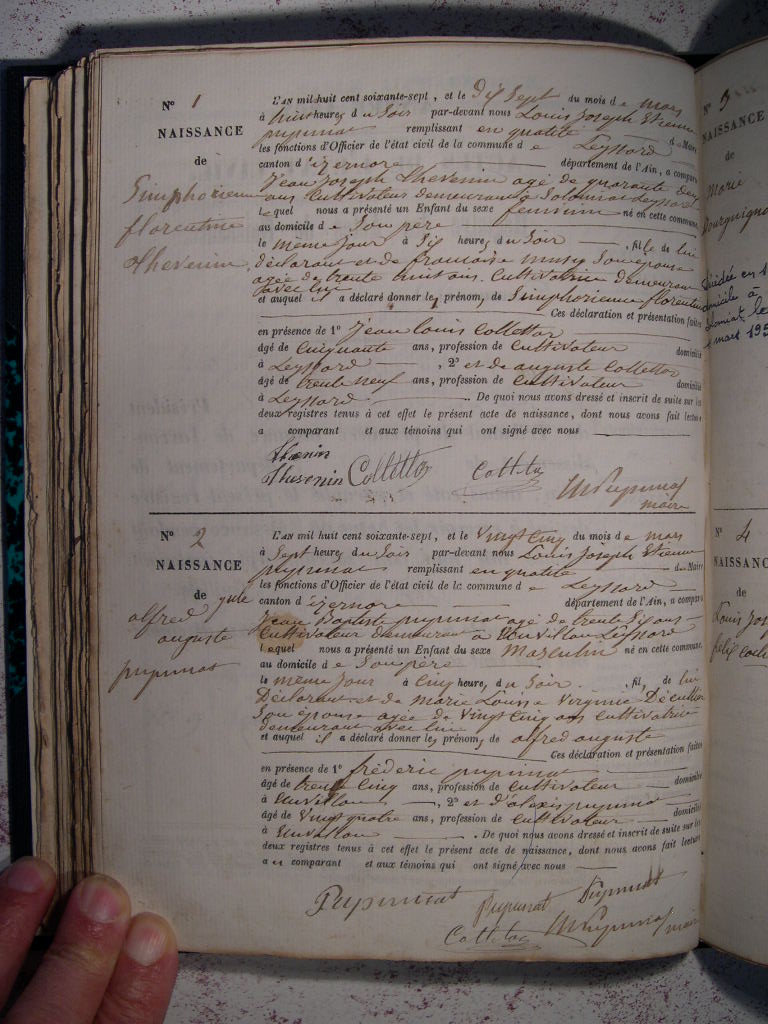 N° 1
NAISSANCE
de
Simphorienne
florentine
thevenin
L'AN mil huit cent soixante-sept, et le dix sept du mois de mars
à huit heures du Soir par-devant nous Louis Joseph Etienne
pupunat remplissant en qualité de Maire
les fonctions d'Officier de l'état civil de la commune de Leyssard
canton d'izernore département de l'Ain, a comparu
Jean Joseph Thevenin agé de quarante deux
ans Cultivateur demeurant à Solomiat Leyssard
Lequel nous a présenté un Enfant du sexe feminin né en cette commune,
au domicile de Son père
le même jour à Six heures du Soir, fille de lui
déclarant et de françoise Son épouse
agée de trente huit ans. Cultivatrice demeurant
avec lui
et auquel il a déclaré donner les prénoms de Simphorienne florentine
Ces déclaration et présentation faites
en présence de 1° Jean louis Collettaz
âgé de Cinquante ans, profession de Cultivateur domicilié
à Leyssard, 2° et de auguste Collettaz
âgé de trente neuf ans, profession de Cultivateur domicilié
à Leyssard. De quoi nous avons dressé et inscrit de suite sur les
deux registres tenus à cet effet le présent acte de naissance, dont nous avons fait lecture
a comparant et aux témoins qui ont signé avec nous
Thevenin Collettaz
pupunat
maire
N° 2
NAISSANCE
de
alfred
auguste
pupunat
L'AN mil huit cent soixante-sept, et le Vingt Cinq du mois de mars
à Sept heures du Soir par-devant nous Louis Joseph Etienne
pupunat remplissant en qualité de Maire
les fonctions d'Officier de l'état civil de la commune de Leyssard
canton d'izernore département de l'Ain, a comparu
Jean Baptiste pupunat agé de trente Six ans
Cultivateur demeurant à Leyssard
Lequel nous a présenté un Enfant du sexe Masculin né en cette commune,
au domicile de Son père
le même jour à Cinq heures, du Soir, fils, de lui
Déclarant et de Marie Louise Virginie
Son épouse agée de Vingt Cinq ans Cultivatrice
demeurant avec lui
et auquel il a déclaré donner les prénoms de alfred auguste
Ces déclaration et présentation faites
en présence de 1° fréderic pupunat
âgé de trente Cinq ans, profession de Cultivateur domicilié
à, 2° et d'alexis pupunat
âgé de Vingt quatre ans, profession de Cultivateur domicilié
à. De quoi nous avons dressé et inscrit de suite sur les
deux registres tenus à cet effet le présent acte de naissance, dont nous avons fait lecture
au comparant et aux témoins qui ont signé avec nous
Pupunat Pupunat Pupunat
pupunat maire
N° 3
NAISSANCE
de
Marie
N° 4
NAISSANCE
de